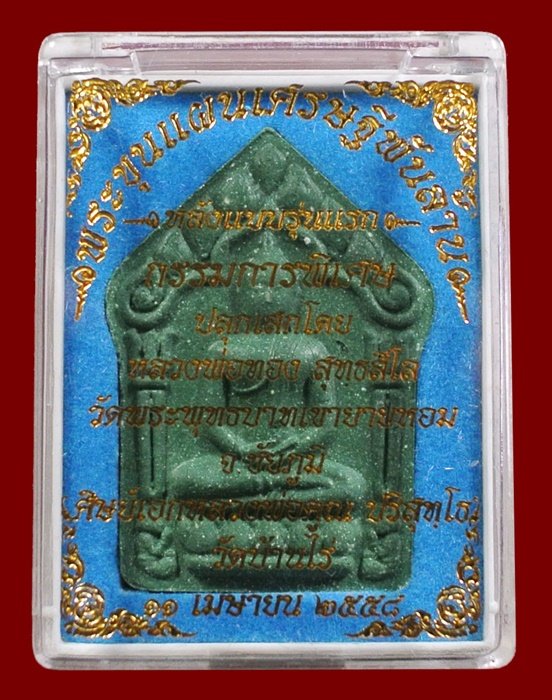 พระขุนแผนเศรษฐีพันล้าน
หลังแบบรุ่นแรก
กรรมการพิเศษ
ปลุกเสกโดย
หลวงพ่อทอง สุทธสีโล
วัดพระพุทธบาทเขายายหอม
จ.ชัยภูมิ
ศิษย์เอกหลวงพ่อคูณ ปริสุทฺโธ
วัดบ้านไร่
๑๑ เมษายน ๒๕๕๘